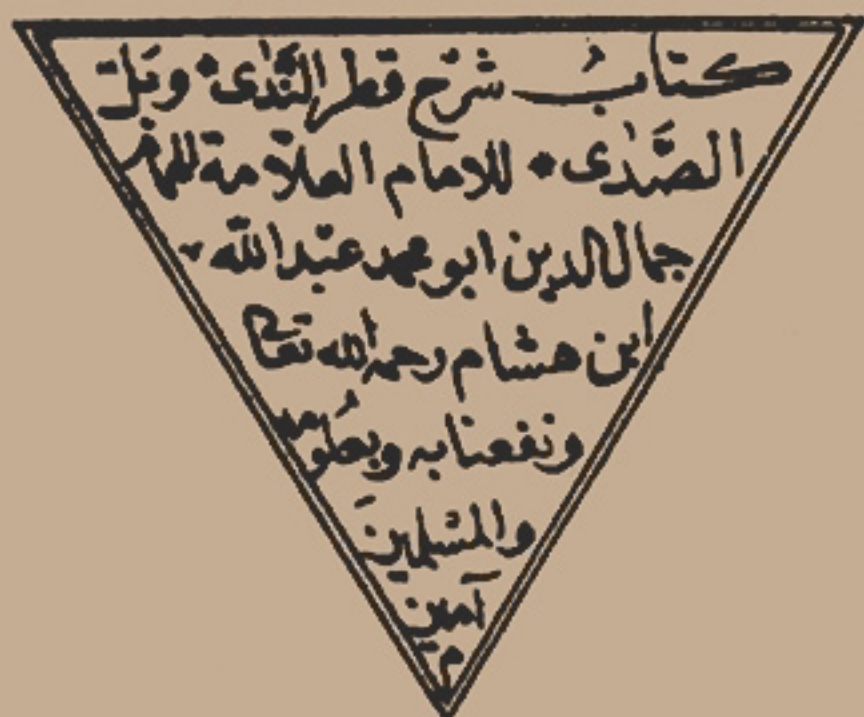 كتابُ شرح قطر النَّدٰى • وبَلّ
الصَّدٰى • للامام العلّامة الهمام
جمال الدين ابو محمد عبد الله
ابن هشام رحمه الله تعالى
ونفعنا به وبعُلومه
والمسلمينَ
آمين
م